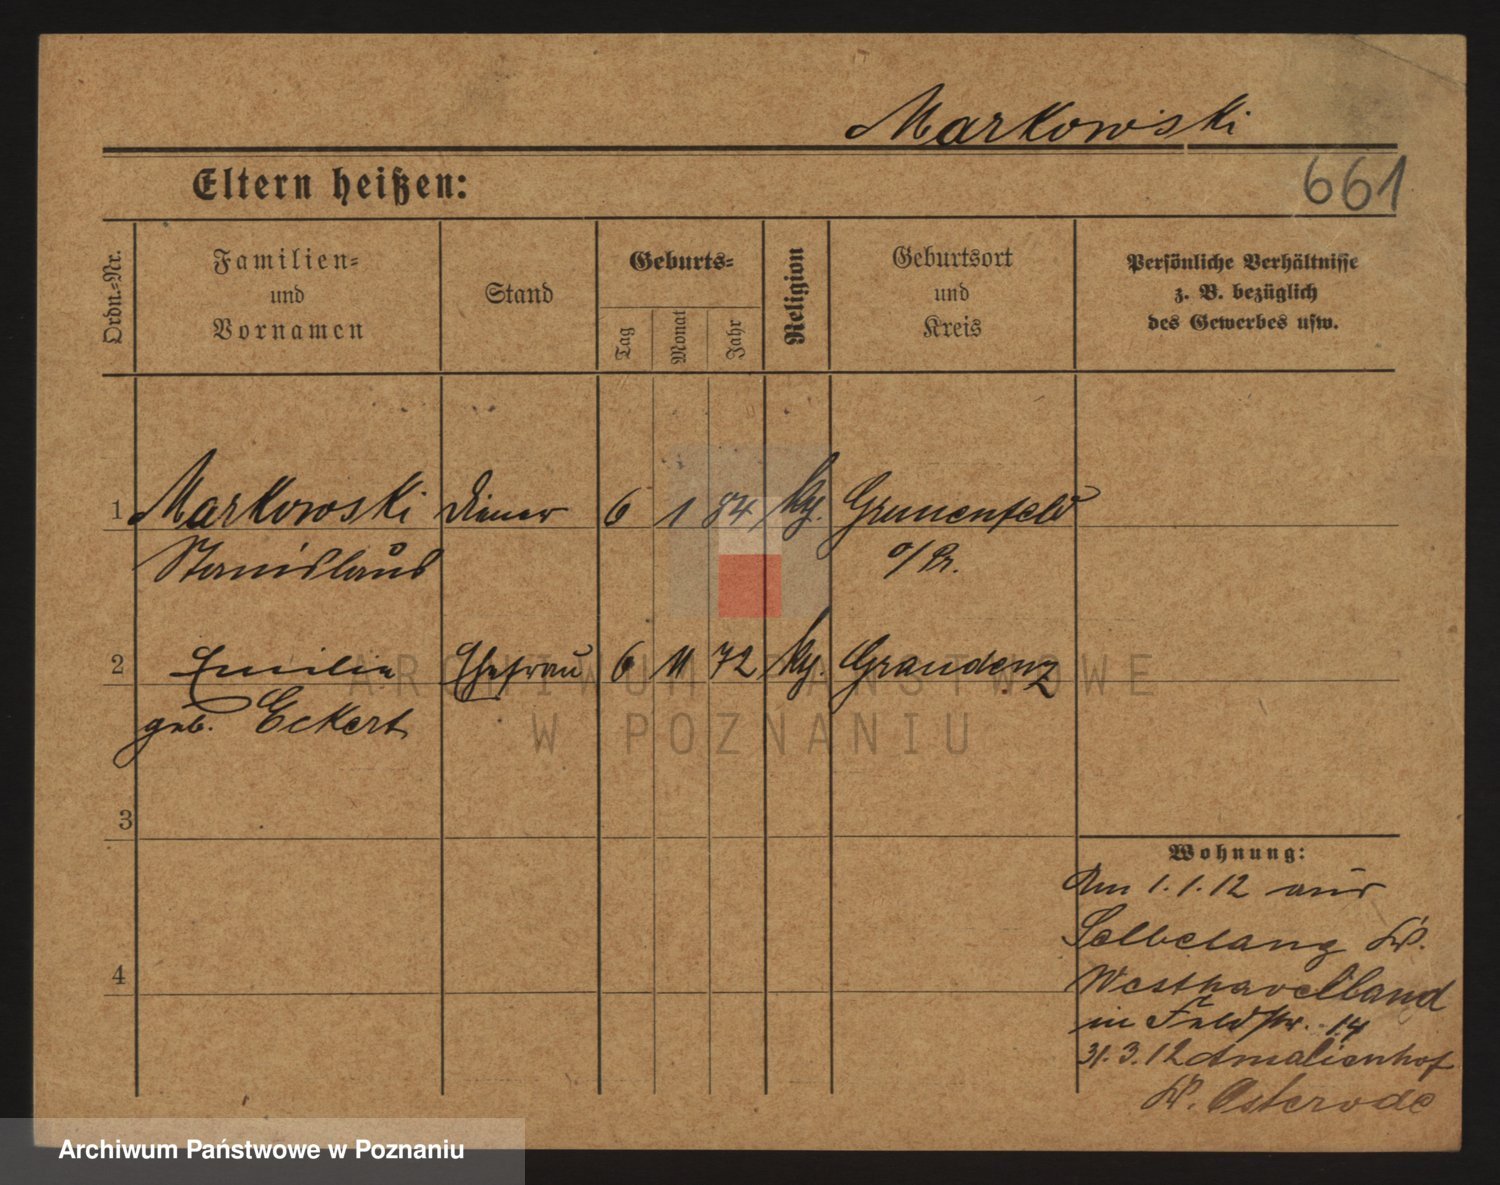 Markowski
661
Eltern heißen:
Ordn.-Nr.
Familien-
und
Vornamen
Stand
Geburts-
Tag
Monat
Jahr
Religion
Geburtsort
und
Kreis
Persönliche Verhältnisse
z. B. bezüglich
des Gewerbes usw.
1 Markowski Diener 6 1 84 kg. Grunenfeld
Stanislaus o/Pr.
2 Emilie Ehefrau 6 11 72 kg. Graudenz
geb. Eckert
3
4
Wohnung:
Am 1.1.12 aus
Selbelang Kr.
Westhavelland
in Feldstr. 14
31.3.12 Amalienhof
Kr. Osterode
ARCHIWUM PAŃSTWOWE
W POZNANIU
Archiwum Państwowe w Poznaniu